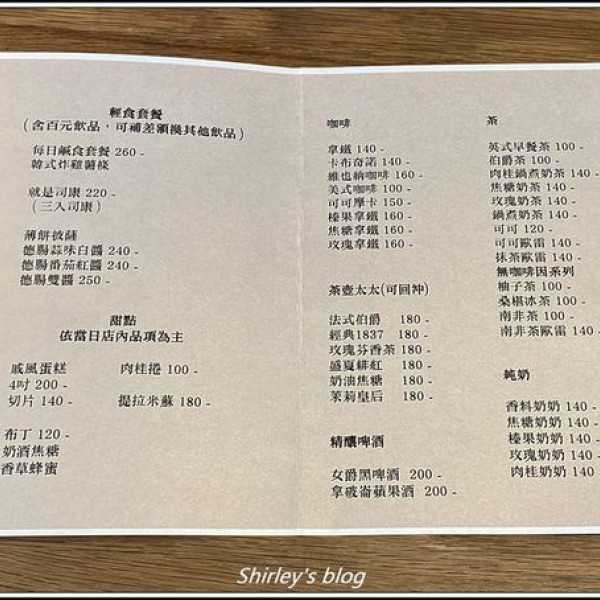 輕食套餐
(含百元飲品，可補差額換其他飲品)
每日鹹食套餐 260-
韓式炸雞薯條
就是司康 220-
(三入司康)
薄餅披薩
德腸蒜味白醬 240-
德腸番茄紅醬 240-
德腸雙醬 250-
甜點
依當日店內品項為主
戚風蛋糕
4吋 200-
切片 140-
肉桂捲 100-
提拉米蘇 180-
布丁 120-
奶酒焦糖
香草蜂蜜
咖啡
拿鐵 140-
卡布奇諾 140-
維也納咖啡 160-
美式咖啡 100-
可可摩卡 150-
榛果拿鐵 160-
焦糖拿鐵 160-
玫瑰拿鐵 160-
茶壺太太(可回沖)
法式伯爵 180-
經典1837 180-
玫瑰芬香茶 180-
盛夏緋紅 180-
奶油焦糖 180-
茉莉皇后 180-
精釀啤酒
女爵黑啤酒 200-
拿破崙蘋果酒 200-
茶
英式早餐茶 100-
伯爵茶 100-
肉桂鍋煮奶茶 140-
焦糖奶茶 140-
玫瑰奶茶 140-
鍋煮奶茶 140-
可可 120-
可可歐雷 140-
抹茶歐雷 140-
無咖啡因系列
柚子茶 100-
桑椹冰茶 100-
南非茶 100-
南非茶歐雷 140-
純奶
香料奶奶 140-
焦糖奶奶 140-
榛果奶奶 140-
玫瑰奶奶 140-
肉桂奶奶 140-
Shirley's blog